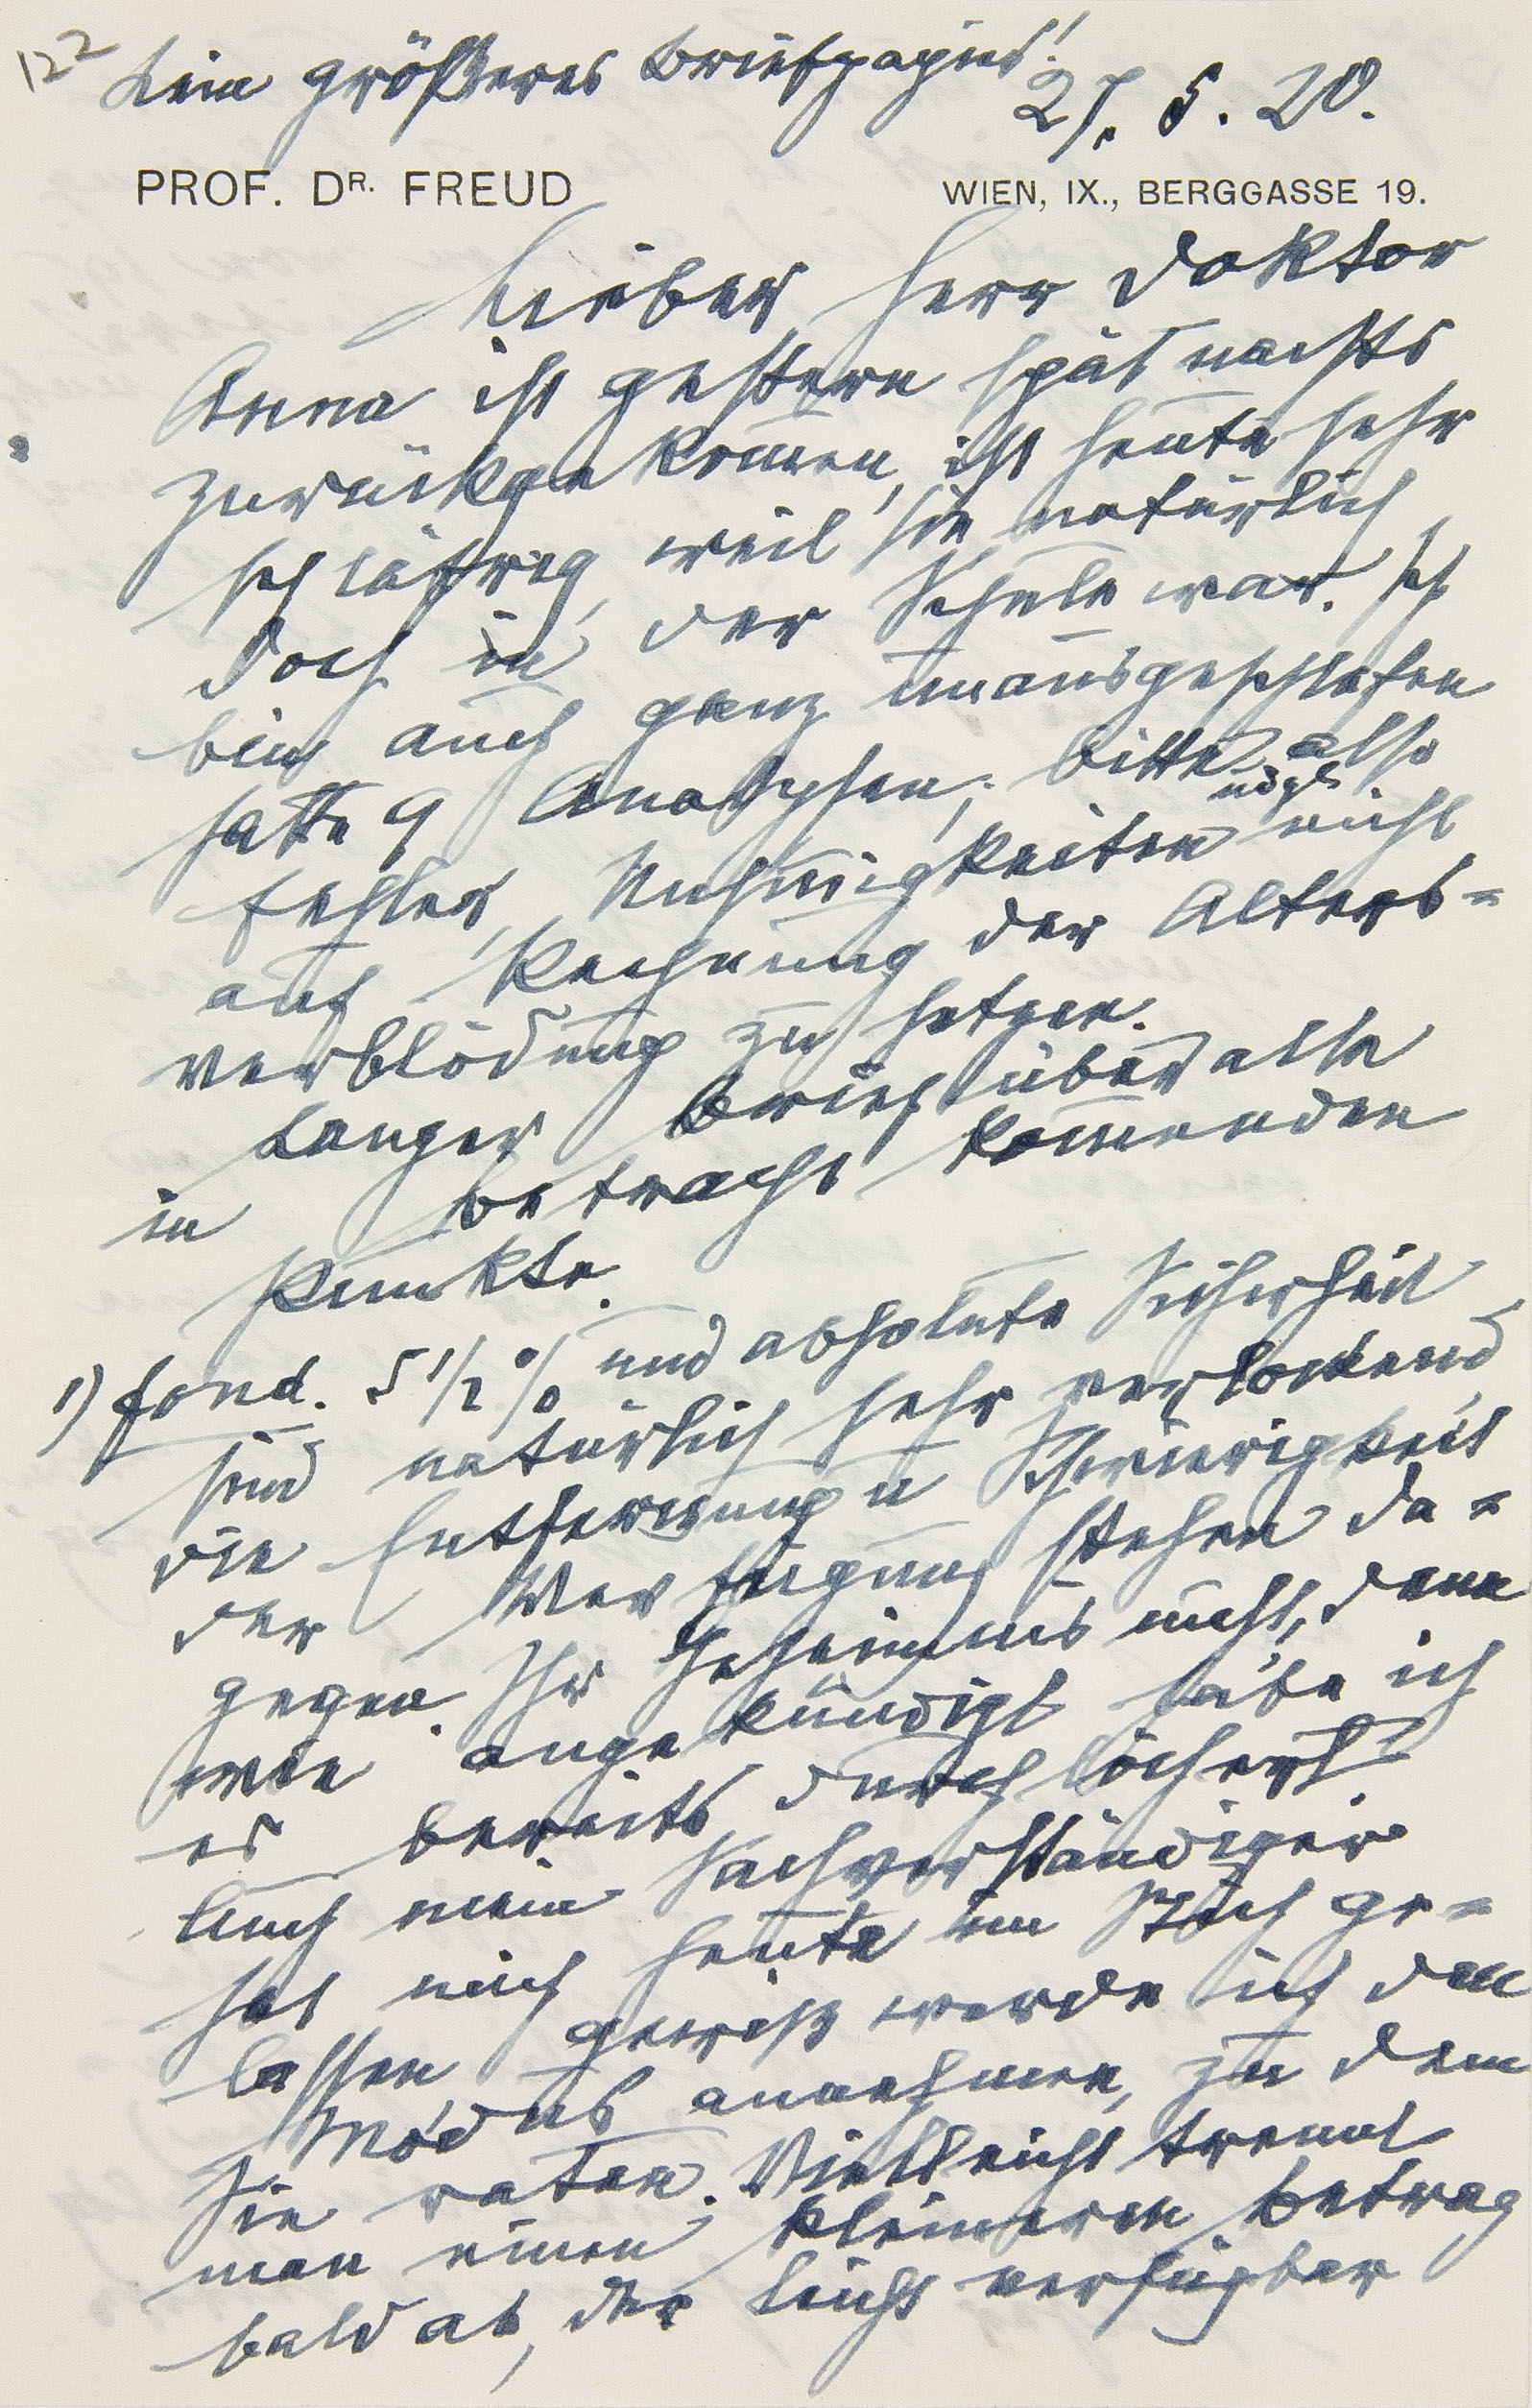 122
Kein größeres Briefpapier!
27. 5. 20.
PROF. DR. FREUD
WIEN, IX., BERGGASSE 19.
Lieber Herr Doktor
Anna ist gestern spät nachts
zurückgekommen, ist heute sehr
schläfrig, weil sie natürlich
doch in der Schule war. Ich
bin auch ganz unausgeschlafen
hatte 9 Analysen; bitte also
Fehler, Unsinnigkeiten mögl nicht
auf Rechnung der Alters=
verblödung zu setzen.
Langer Brief über alle
in Betracht kommenden
Punkte.
1) Fond. 5 1/2 % und absolute Sicherheit
sind natürlich sehr verlockend,
die Entfernung u Schwierigkeit
der Verfügung stehen da=
gegen. Ihr Geheimnis nicht, denn
wie angekündigt habe ich
es bereits durchlöchert.
Auch mein Sachverständiger
hat mich heute im Stich ge=
lassen, gewiß werde ich den
Modus annehmen, zu dem
Sie raten. Vielleicht trennt
man einen kleineren Betrag
bald ab, der leicht verfügbar